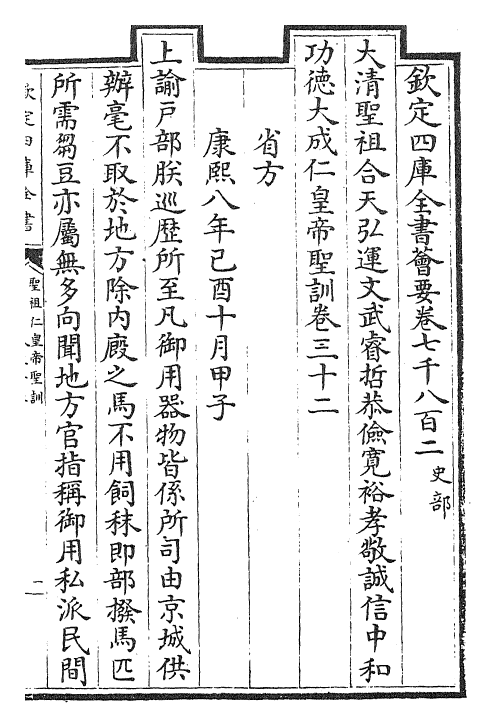 欽定四庫全書薈要卷七千八百二 史部
大清聖祖合天弘運文武睿哲恭儉寬裕孝敬誠信中和
功德大成仁皇帝聖訓卷三十二
省方
康熙八年己酉十月甲子
上諭戸部朕巡歴所至凡御用器物皆係所司由京城供
辦毫不取於地方除内廄之馬不用飼秣即部撥馬匹
所需芻豆亦屬無多向聞地方官指稱御用私派民間
欽定四庫全書
聖祖仁皇帝聖訓
一